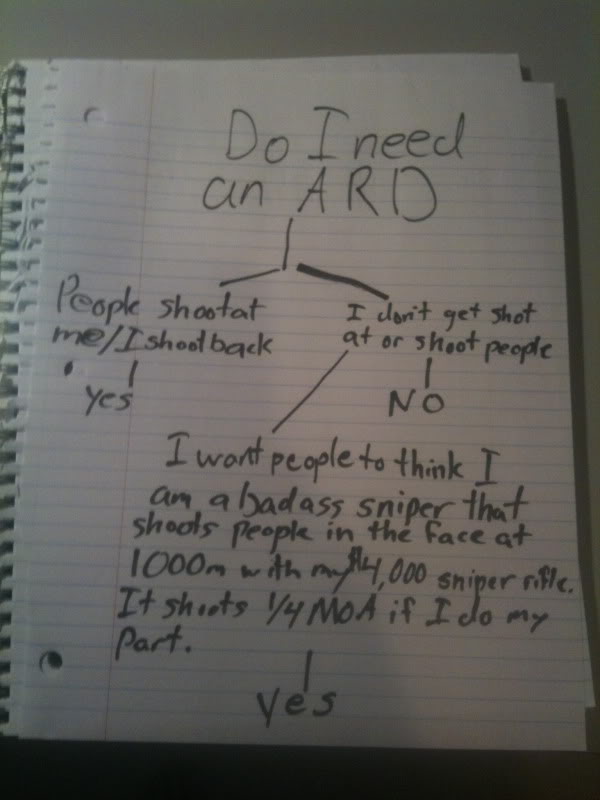 Do I need
an ARD
People shoot at
me/I shoot back
yes
I don't get shot
at or shoot people
NO
I want people to think I
am a badass sniper that
shoots people in the face at
1000m with my $4,000 sniper rifle.
It shoots 1/4 MOA if I do my
part.
yes